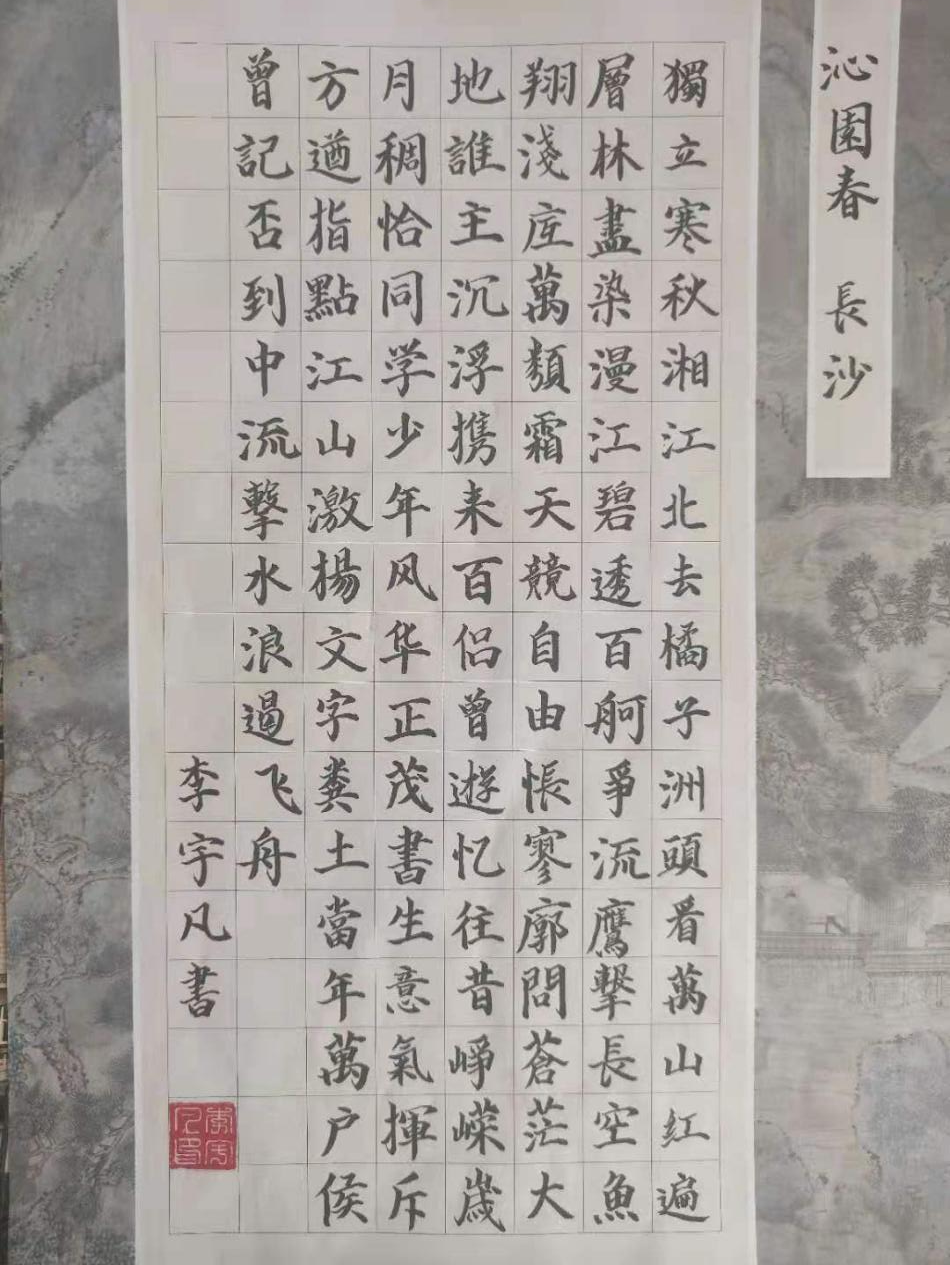 沁園春 長沙
獨立寒秋湘江北去橘子洲頭看萬山红遍
層林盡染漫江碧透百舸爭流鷹擊長空魚
翔淺底萬類霜天競自由悵寥廓問蒼茫大
地誰主沉浮携来百侣曾遊忆往昔峥嵘歲
月稠恰同学少年风华正茂書生意氣揮斥
方遒指點江山激揚文字糞土當年萬户侯
曾記否到中流擊水浪遏飞舟
李宇凡書
李宇凡印